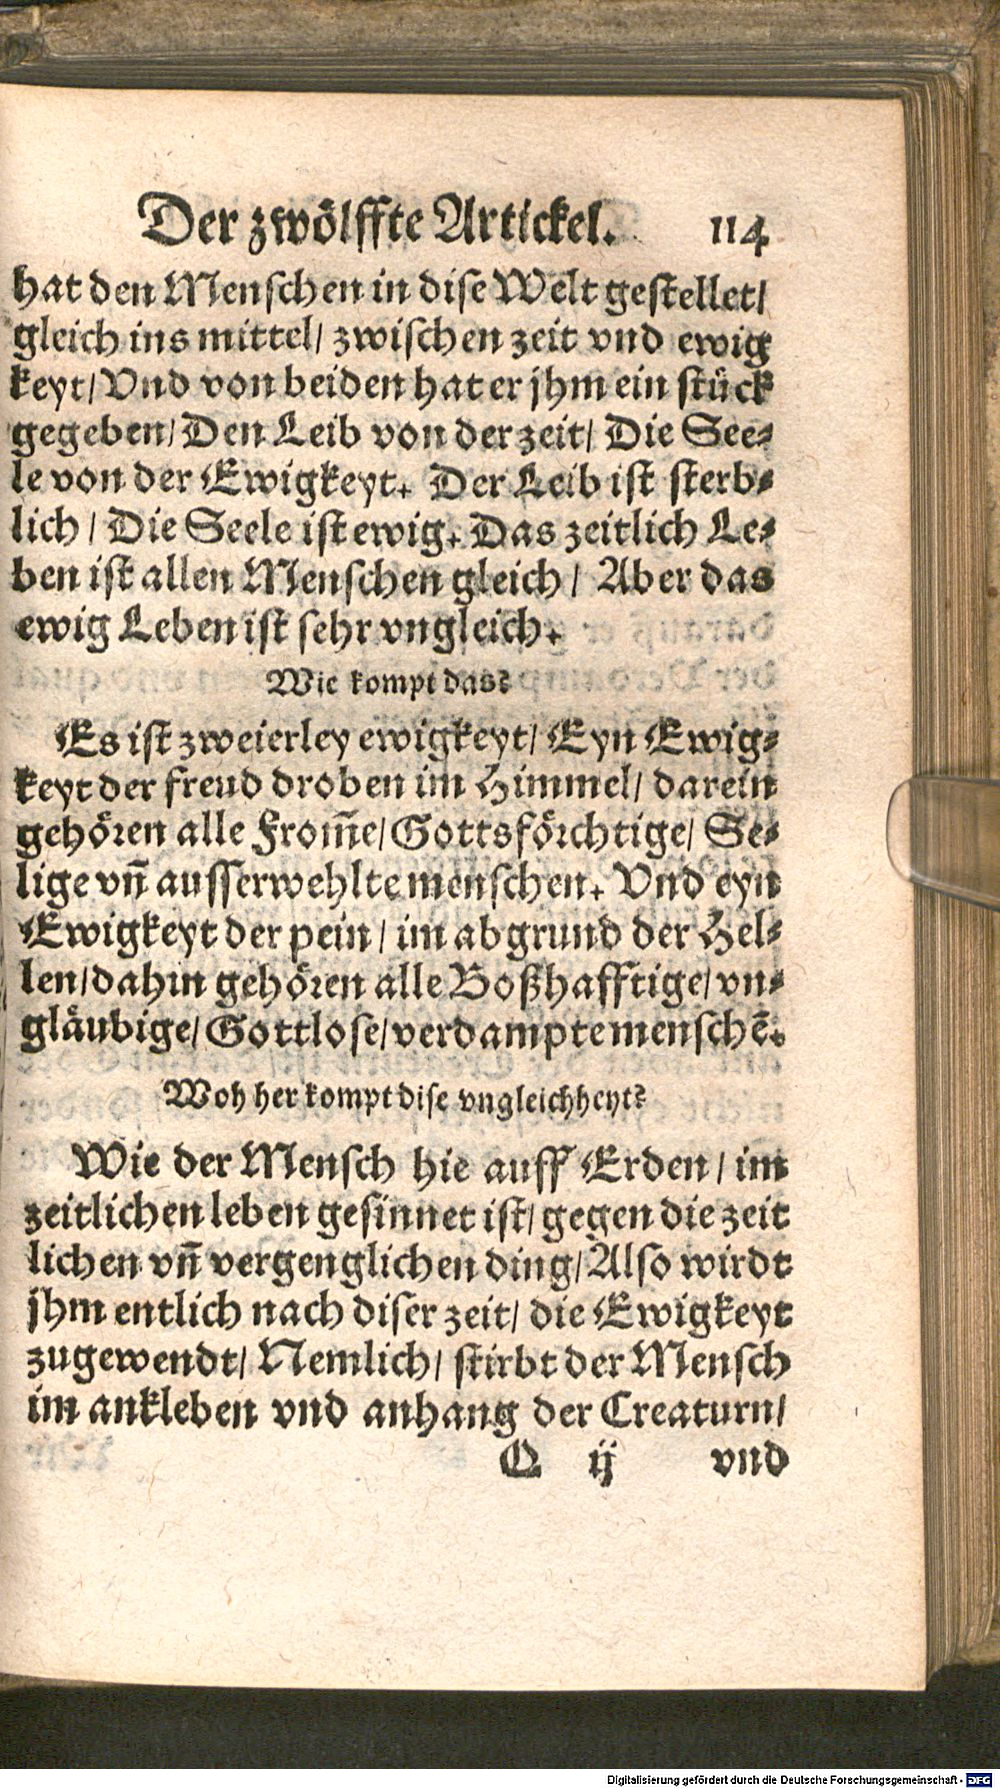 Der zwölffte Artickel. 114
hat den Menschen in dise Welt gestellet/
gleich ins mittel/ zwischen zeit vnd ewig
keyt/ Vnd von beiden hat er jhm ein stück
gegeben/ Den Leib von der zeit/ Die See-
le von der Ewigkeyt. Der Leib ist sterb-
lich/ Die Seele ist ewig. Das zeitlich Le-
ben ist allen Menschen gleich/ Aber das
ewig Leben ist sehr vngleich.
Wie kompt das?
Es ist zweierley ewigkeyt/ Eyn Ewig-
keyt der freud droben im Himmel/ darein
gehören alle From̄e/ Gottsförchtige/ Se-
lige vn̄ ausserwehlte menschen. Vnd eyn
Ewigkeyt der pein/ im abgrund der Hel-
len/ dahin gehören alle Boßhafftige/ vn-
gläubige/ Gottlose/ verdampte menschē.
Woh her kompt dise vngleichheyt?
Wie der Mensch hie auff Erden/ im
zeitlichen leben gesinnet ist/ gegen die zeit
lichen vn̄ vergenglichen ding/ Also wirdt
jhm entlich nach diser zeit/ die Ewigkeyt
zugewendt/ Nemlich/ stirbt der Mensch
im ankleben vnd anhang der Creaturn/
Q ij vnd
Digitalisierung gefördert durch die Deutsche Forschungsgemeinschaft - DFG